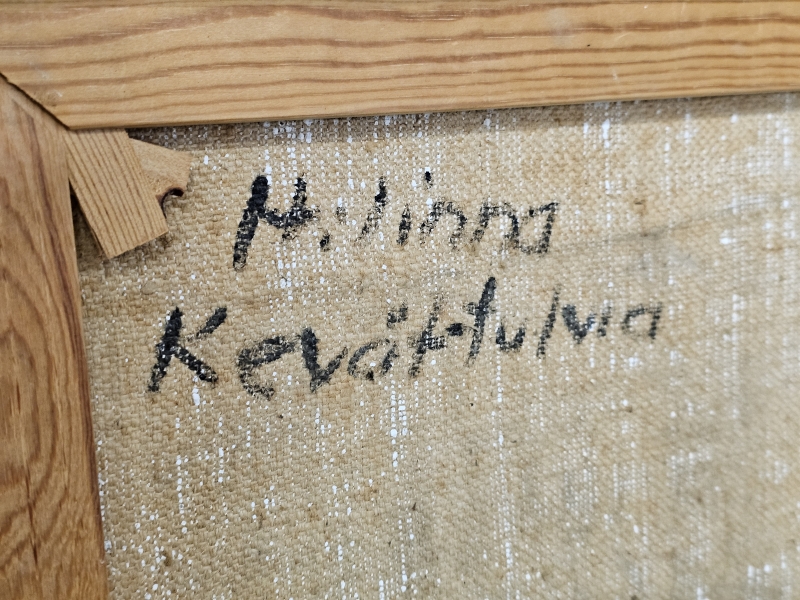 N. Linna
Kevättulvia